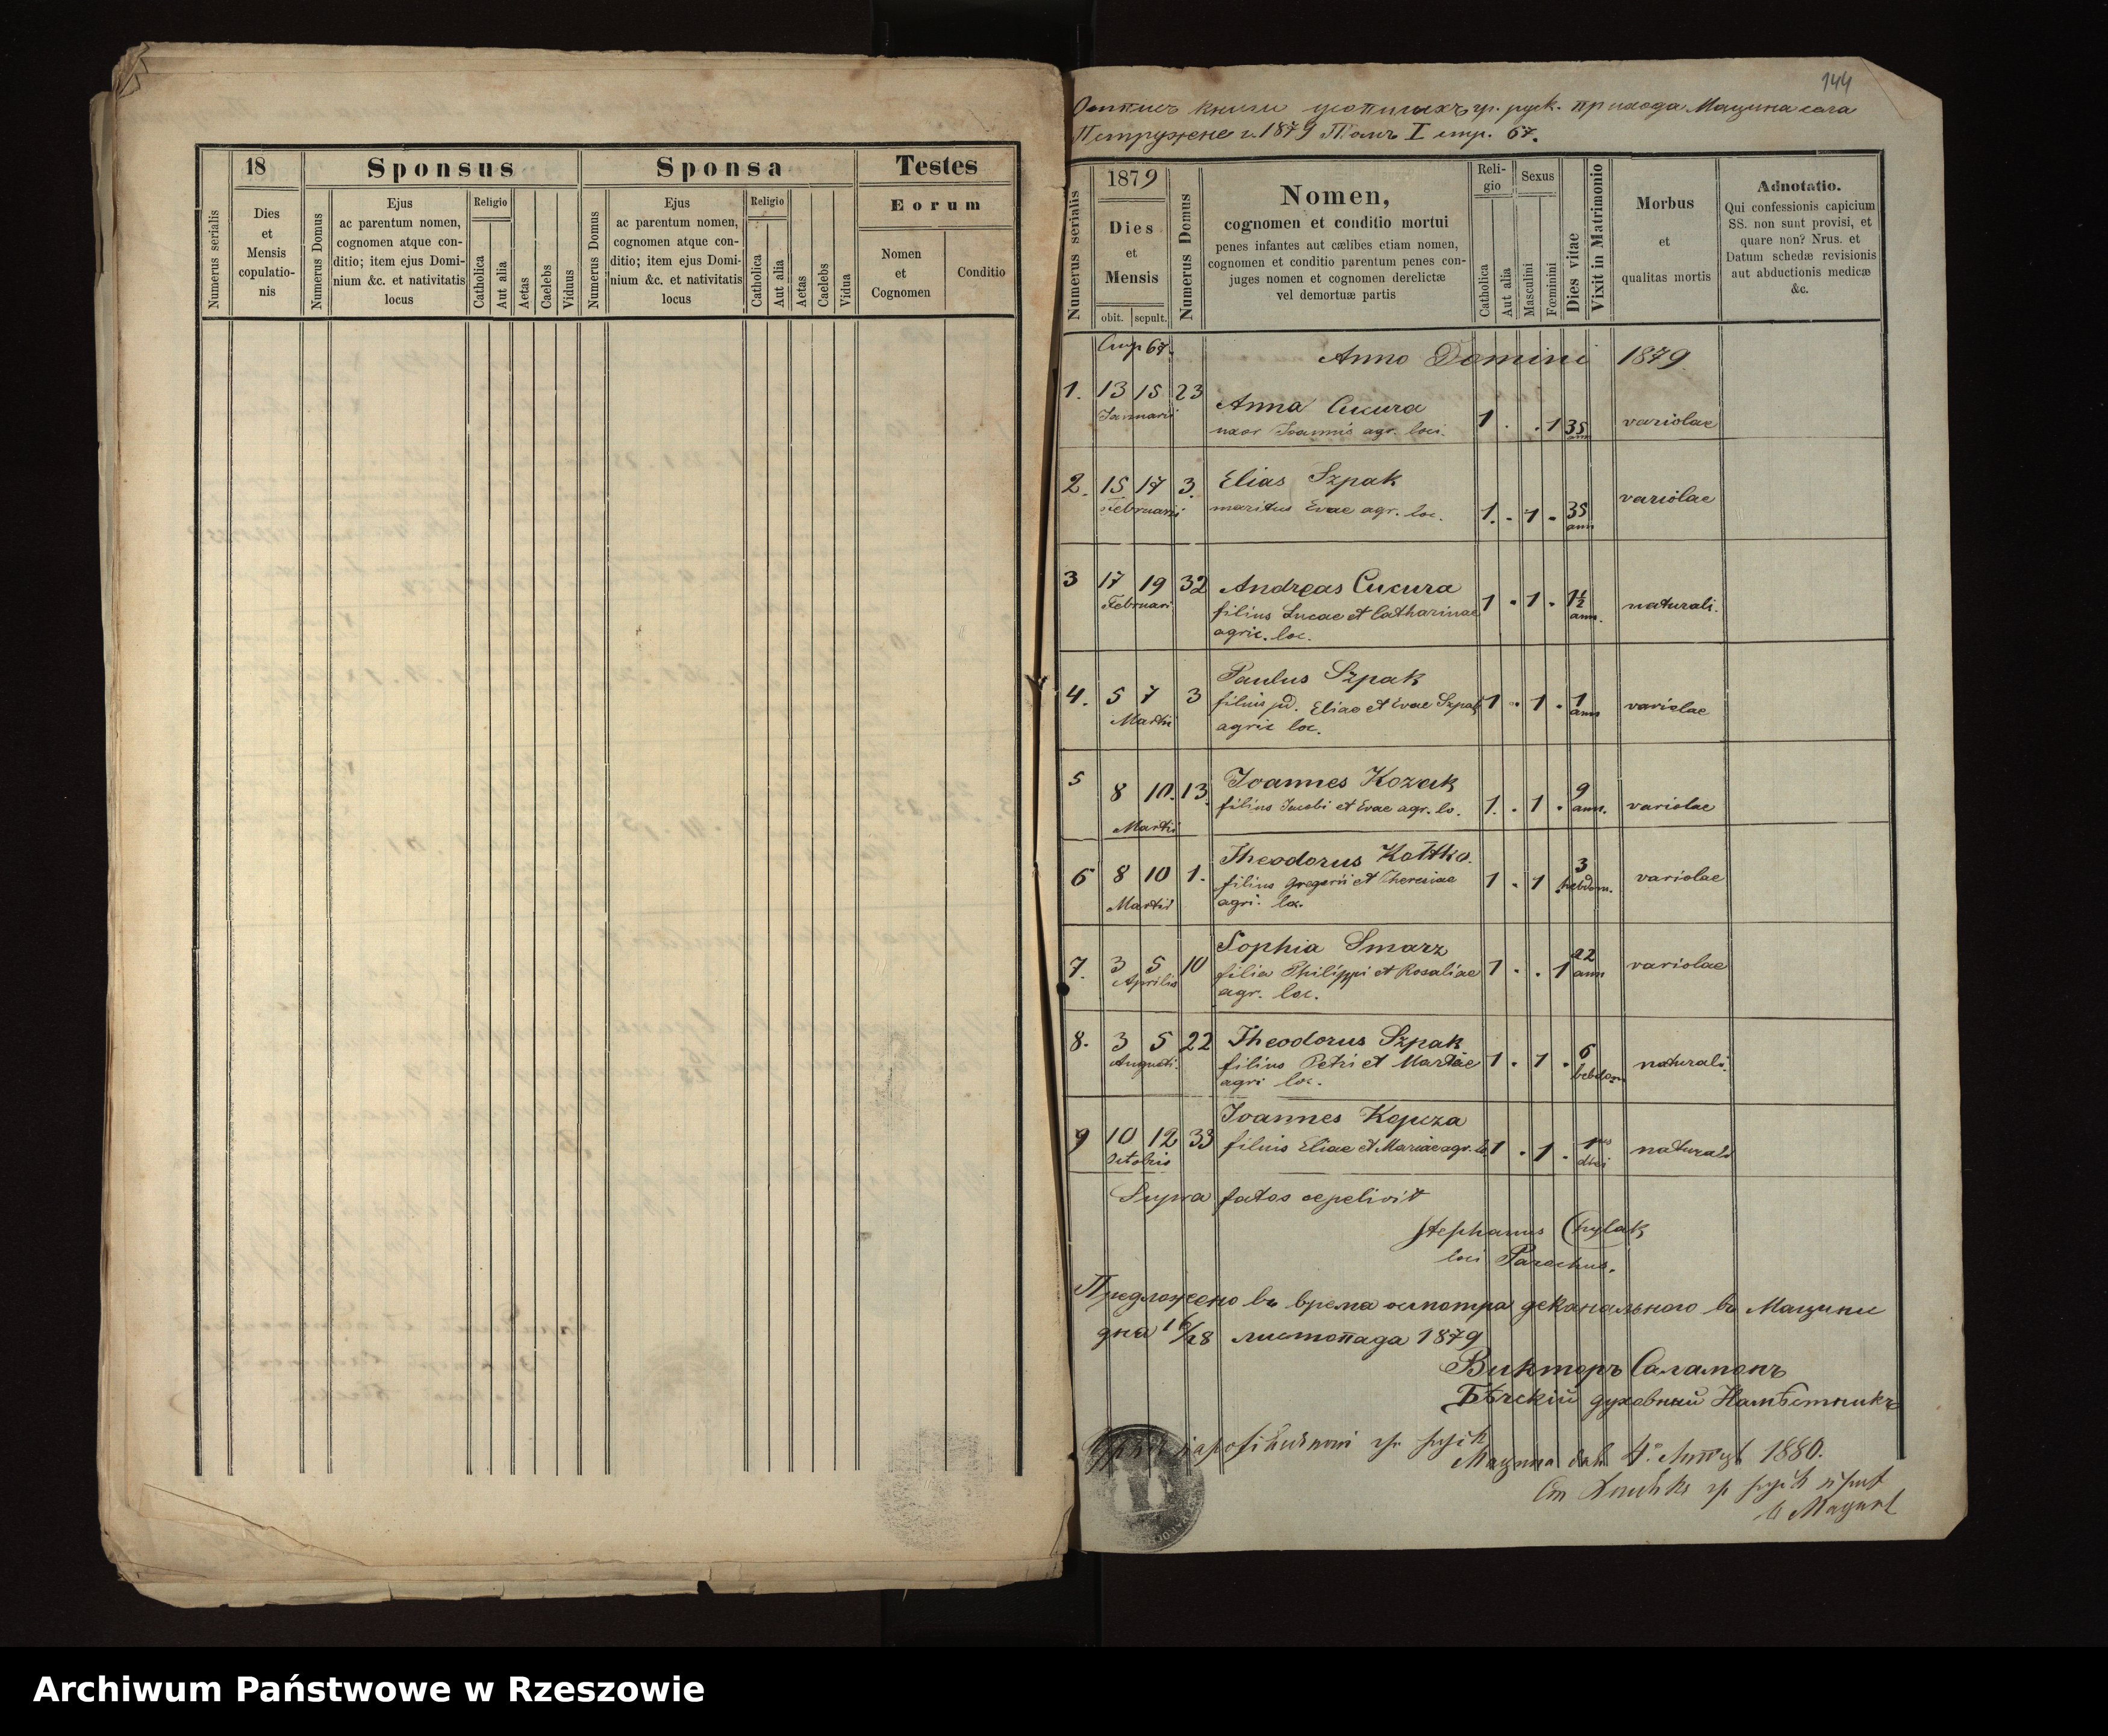 18
Sponsus
Sponsa
Testes
Numerus serialis
Dies
et
Mensis
copulatio-
nis
Numerus Domus
Ejus
ac parentum nomen,
cognomen atque con-
ditio; item ejus Domi-
nium &c. et nativitatis
locus
Religio
Catholica
Aut alia
Aetas
Caelebs
Viduus
Numerus Domus
Ejus
ac parentum nomen,
cognomen atque con-
ditio; item ejus Domi-
nium &c. et nativitatis
locus
Religio
Catholica
Aut alia
Aetas
Caelebs
Vidua
Eorum
Nomen
et
Cognomen
Conditio
144
книги гр. руск. прихода Мацина села
г. 1879 Томъ I стр. 67.
Numerus serialis
1879
Dies
et
Mensis
obit. sepult.
Numerus Domus
Nomen,
cognomen et conditio mortui
penes infantes aut cælibes etiam nomen,
cognomen et conditio parentum penes con-
juges nomen et cognomen derelictæ
vel demortuæ partis
Reli-
gio
Catholica
Aut alia
Sexus
Masculini
Fœminini
Dies vitae
Vixit in Matrimonio
Morbus
et
qualitas mortis
Adnotatio.
Qui confessionis capicium
SS. non sunt provisi, et
quare non? Nrus. et
Datum schedæ revisionis
aut abductionis medicæ
&c.
Стр 67. Anno Domini 1879.
1. 13 15 23 Anna Cucura
Januarii uxor Joannis agr. loci. 1 . . 1 35 ann variolae
2. 15 17 3. Elias Szpak
Februarii maritus Evae agr. loc. 1. . 1 . 35 ann variolae
3 17 19 32 Andreas Cucura
Februari filius Lucae et Catharinae 1 . 1 . 1½ ann. naturali.
agric. loc.
4. 5 7 3 Paulus Szpak
Martii filius Eliae et Evae Szpak 1 . 1 . 1 ann variolae
agric loc.
5 8 10. 13. Joannes Kozak
Martii filius Jacobi et Evae agr. lo. 1. . 1 . 9 ann. variolae
6 8 10 1. Theodorus Kottko.
Martii filius Gregorii et Theresiae 1 . 1 . 3 hebdom. variolae
agri. loc.
7. 3 5 10 Sophia Smarz
Aprilis filia Philippi et Rosaliae 1 . . 1 22 ann variolae
agr. loc.
8. 3 5 22 Theodorus Szpak
Augusti. filius Petri et Martae 1 . 1 . 6 hebdom naturali.
agri loc.
9 10 12 33 Joannes Kopcza
Octobris filius Eliae et Mariae agr. lo 1 . 1 . 1 diei naturali
Supra fatos sepelivit
Stephanus Chylak
loci Parochus.
Предложено въ время осмотра деканального въ Мацини
дня 16/28 листопада 1879
Викторъ Саламонъ
Бѣчскій духовный Намѣстникъ
Мацина 1880.